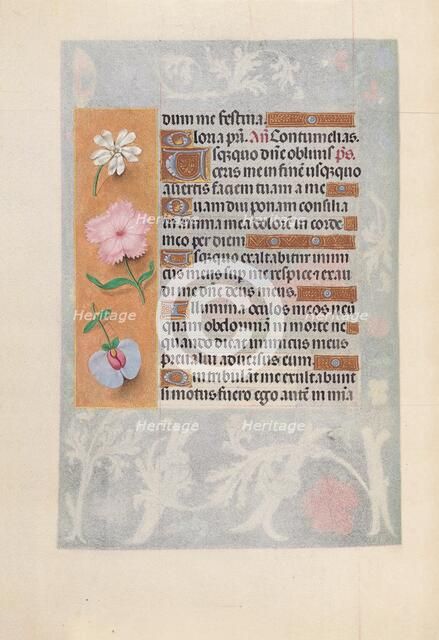 dum me festina.
Gloria pri. An Contumelias.
Usqzquo dne obliuis ps.
ceris me in fine usqzquo
auertis faciem tuam a me
Quamdiu ponam consilia
in anima mea dolore in corde
meo per diem
Usqzquo exaltabitur inimi
cus meus sup me respice et exau
di me dne deus meus.
Illumina oculos meos ne
quam obdormia in morte ne
quando dicat inimicus meus
preualui aduersus eum.
Qui tribulat me exultabunt
si motus fuero ego aute in mia
Heritage
Heritage
Heritage
Heritage
Heritage
Heritage